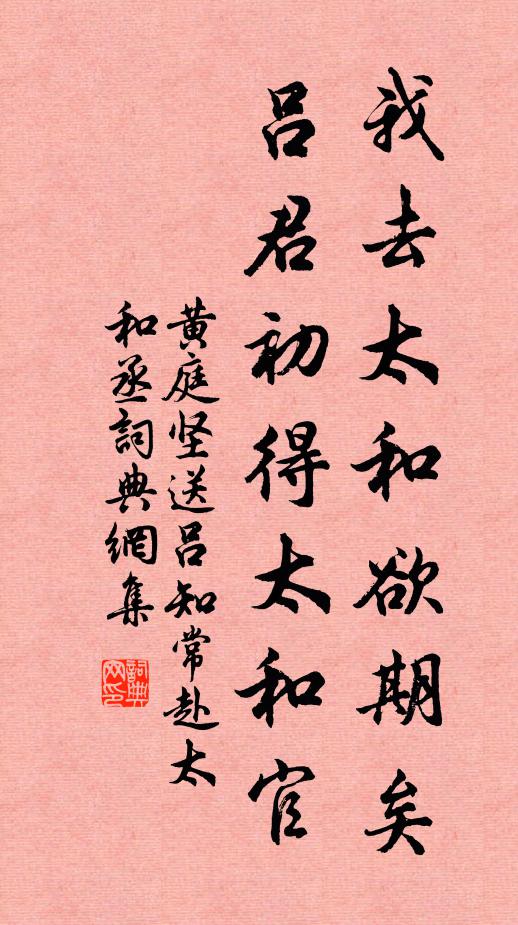 我去太和欲期矣
吕君初得太和官
黄庭坚送吕知常赴太
和丞詞典網集
詞典网印